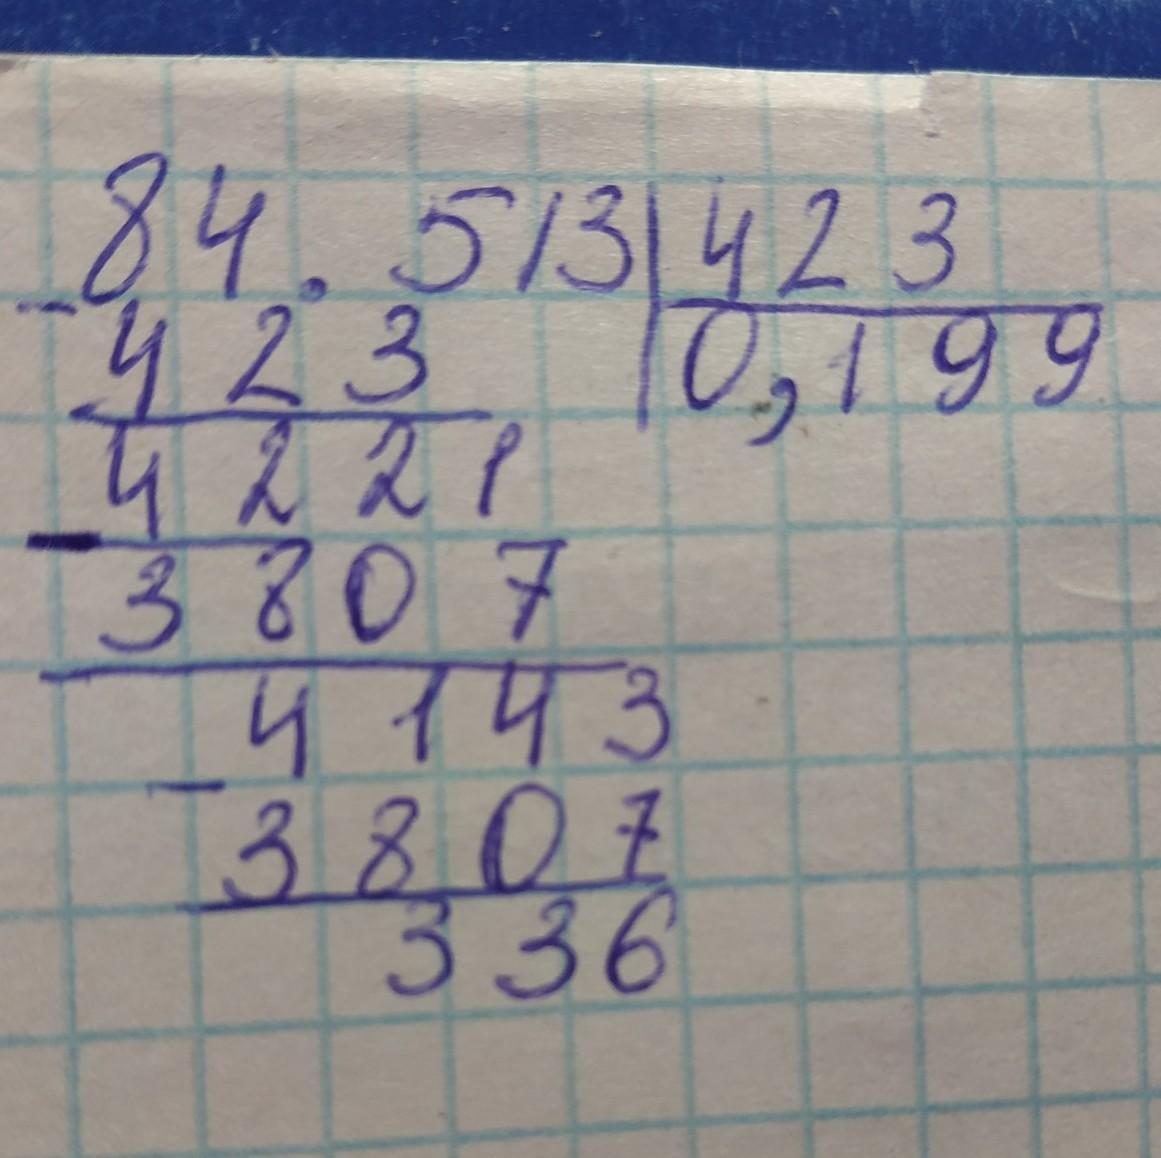 84.513 423
- 423 0,199
4221
- 3807
4143
- 3807
336